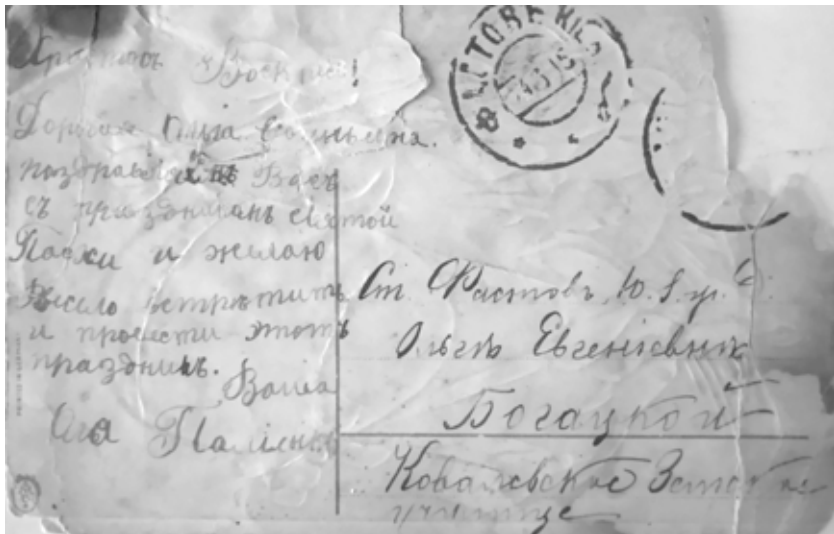 Христосъ Воскресъ!
Дорогая Ольга Евгеньевна.
поздравляю Васъ
съ праздникомъ святой
Пасхи и желаю
Весело встрѣтить
и провести этотъ
праздникъ.
Ваша
Оля
Ст. Фастовъ, Ю. З.
Ольгѣ Евгеніевнѣ
Богацкой
Ковалевское Земское
училище